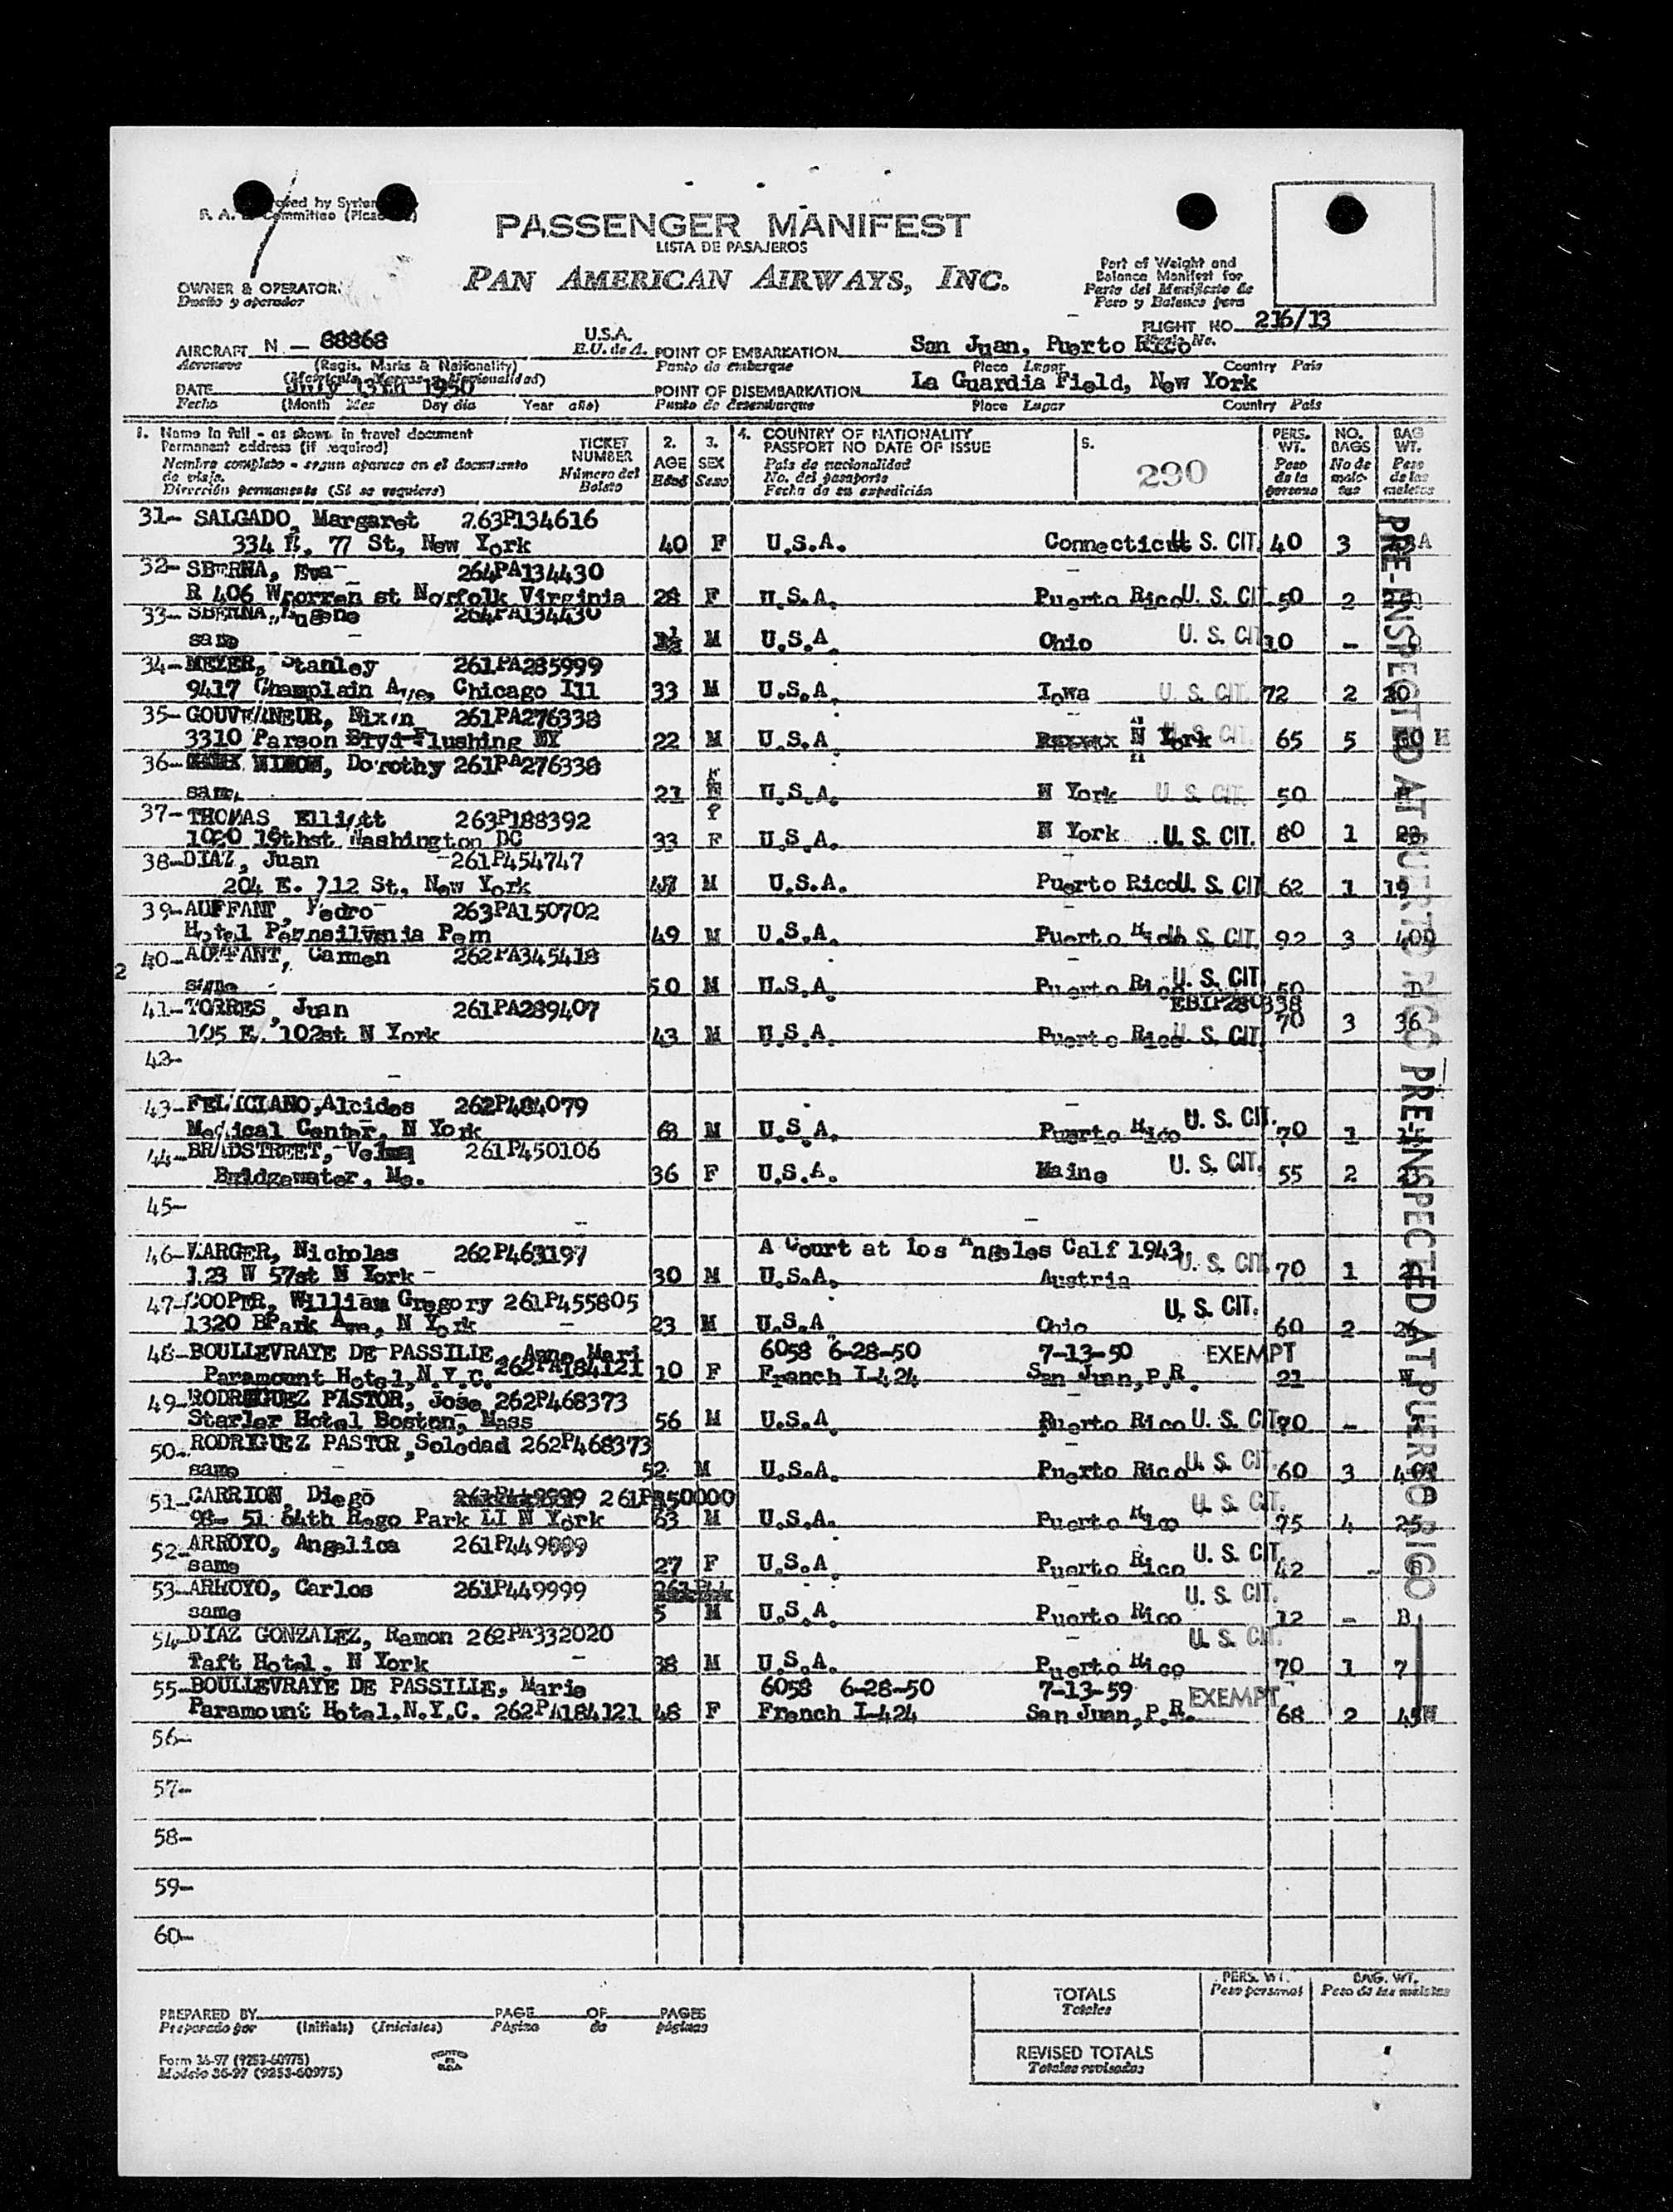 PASSENGER MANIFEST
LISTA DE PASAJEROS
PAN AMERICAN AIRWAYS, INC.
Part of Weight and
Balance Manifest for
Parte del Manifiesto de
Peso y Balance para
OWNER & OPERATOR
Dueño y operador
FLIGHT NO. 216/13
AIRCRAFT N - 88868 U.S.A.
Aeronave (Regis. Marks & Nationality) E.U. de A.
POINT OF EMBARKATION San Juan, Puerto Rico
Punto de embarque Place Lugar Country País
DATE July 13th 1950
Fecha (Month Mes Day día Year año)
POINT OF DISEMBARKATION La Guardia Field, New York
Punto de desembarque Place Lugar Country País
1. Name in full - as shown in travel document
Permanent address (if required)
Nombre completo - segun aparece en el documento
de viaje.
Dirección permanente (Si se requiere)
TICKET NUMBER
Número del Boleto
2. AGE Edad
3. SEX Sexo
4. COUNTRY OF NATIONALITY
PASSPORT NO DATE OF ISSUE
País de nacionalidad
No. del pasaporte
Fecha de su expedición
5.
290
PERS. WT. Peso de la persona
NO. BAGS No de male-tas
BAG WT. Peso de las maletas
31- SALGADO, Margaret 263P134616
334 E. 77 St, New York 40 F U.S.A. Connecticut U. S. CIT. 40 3
32- SBERNA, Eva 264PA134430
R 406 Worren st Norfolk Virginia 28 F U.S.A. Puerto Rico U. S. CIT 50 2
33- SBERNA, Eugene 264PA134430
same M U.S.A Ohio U. S. CIT 10 -
34- MEYER, Stanley 261PA285999
9417 Champlain Ave, Chicago Ill 33 M U.S.A. Iowa U. S. CIT. 72 2 20
35- GOUVERNEUR, Nixon 261PA276338
3310 Parson Blvd Flushing NY 22 M U.S.A N York U. S. CIT. 65 5
36- Dorothy 261PA276338
same 21 U.S.A. N York U. S. CIT. 50
37- THOMAS Elliott 263P188392
1020 19thst Washington DC 33 F U.S.A. N York U. S. CIT. 80 1
38- DIAZ, Juan 261P454747
204 E. 112 St, New York 47 M U.S.A. Puerto Rico U. S. CIT 62 1 19
39- AUFFANT, Pedro 263PA150702
Hotel Pennsilvania Penn 49 M U.S.A. Puerto Rico U. S. CIT. 92 3
2
40- AUFFANT, Carmen 262PA345418
same 50 M U.S.A. Puerto Rico U. S. CIT. 50
41- TORRES, Juan 261PA289407
105 E. 102st N York 43 M U.S.A. Puerto Rico U. S. CIT. 70 3 36
42-
43- FELICIANO, Alcides 262P484079
Medical Center, N York 68 M U.S.A. Puerto Rico U. S. CIT. 70 1
44- BRADSTREET, Velma 261P450106
Bridgewater, Me. 36 F U.S.A. Maine U. S. CIT. 55 2
45-
46- Nicholas 262P463197 A Court at los Angeles Calf 1943
123 W 57st N York 30 M U.S.A. Austria U. S. CIT. 70 1
47- COOPER, William Gregory 261P455805
1320 BPark Ave, N York 23 M U.S.A Ohio U. S. CIT. 60 2
48- BOULLEVRAYE DE PASSILLE, Anne Mari 6058 6-28-50 7-13-50 EXEMPT
Paramount Hotel, N.Y.C. 262PA184121 10 F French I-424 San Juan, P.R. 21
49- RODRIGUEZ PASTOR, Jose 262P468373
Starler Hotel Boston, Mass 56 M U.S.A Puerto Rico U. S. CIT. 70 -
50- RODRIGUEZ PASTOR, Soledad 262P468373
same 52 M U.S.A. Puerto Rico U. S. CIT. 60 3
51- CARRION, Diego 261P450000
98- 51 64th Rego Park LI N York 63 M U.S.A. Puerto Rico U. S. CIT. 75 4 25
52- ARROYO, Angelica 261P449999
same 27 F U.S.A Puerto Rico U. S. CIT. 42 -
53- ARROYO, Carlos 261P449999
same 5 M U.S.A. Puerto Rico U. S. CIT. 12 -
54- DIAZ GONZALEZ, Ramon 262PA332020
Taft Hotel, N York 38 M U.S.A. Puerto Rico U. S. CIT. 70 1 7
55- BOULLEVRAYE DE PASSILLE, Marie 6058 6-28-50 7-13-59 EXEMPT
Paramount Hotel, N.Y.C. 262PA184121 48 F French I-424 San Juan, P.R. 68 2 45
56-
57-
58-
59-
60-
PRE-INSPECTED AT PUERTO RICO PRE-INSPECTED AT PUERTO RICO
TOTALS
Totales
PERS. WT.
Peso personal
BAG. WT.
Peso de las maletas
PREPARED BY PAGE OF PAGES
Preparado por (Initials) (Iniciales) Página de páginas
REVISED TOTALS
Totales revisados
Form 36-97 (9253-60975)
Modelo 36-97 (9253-60975)